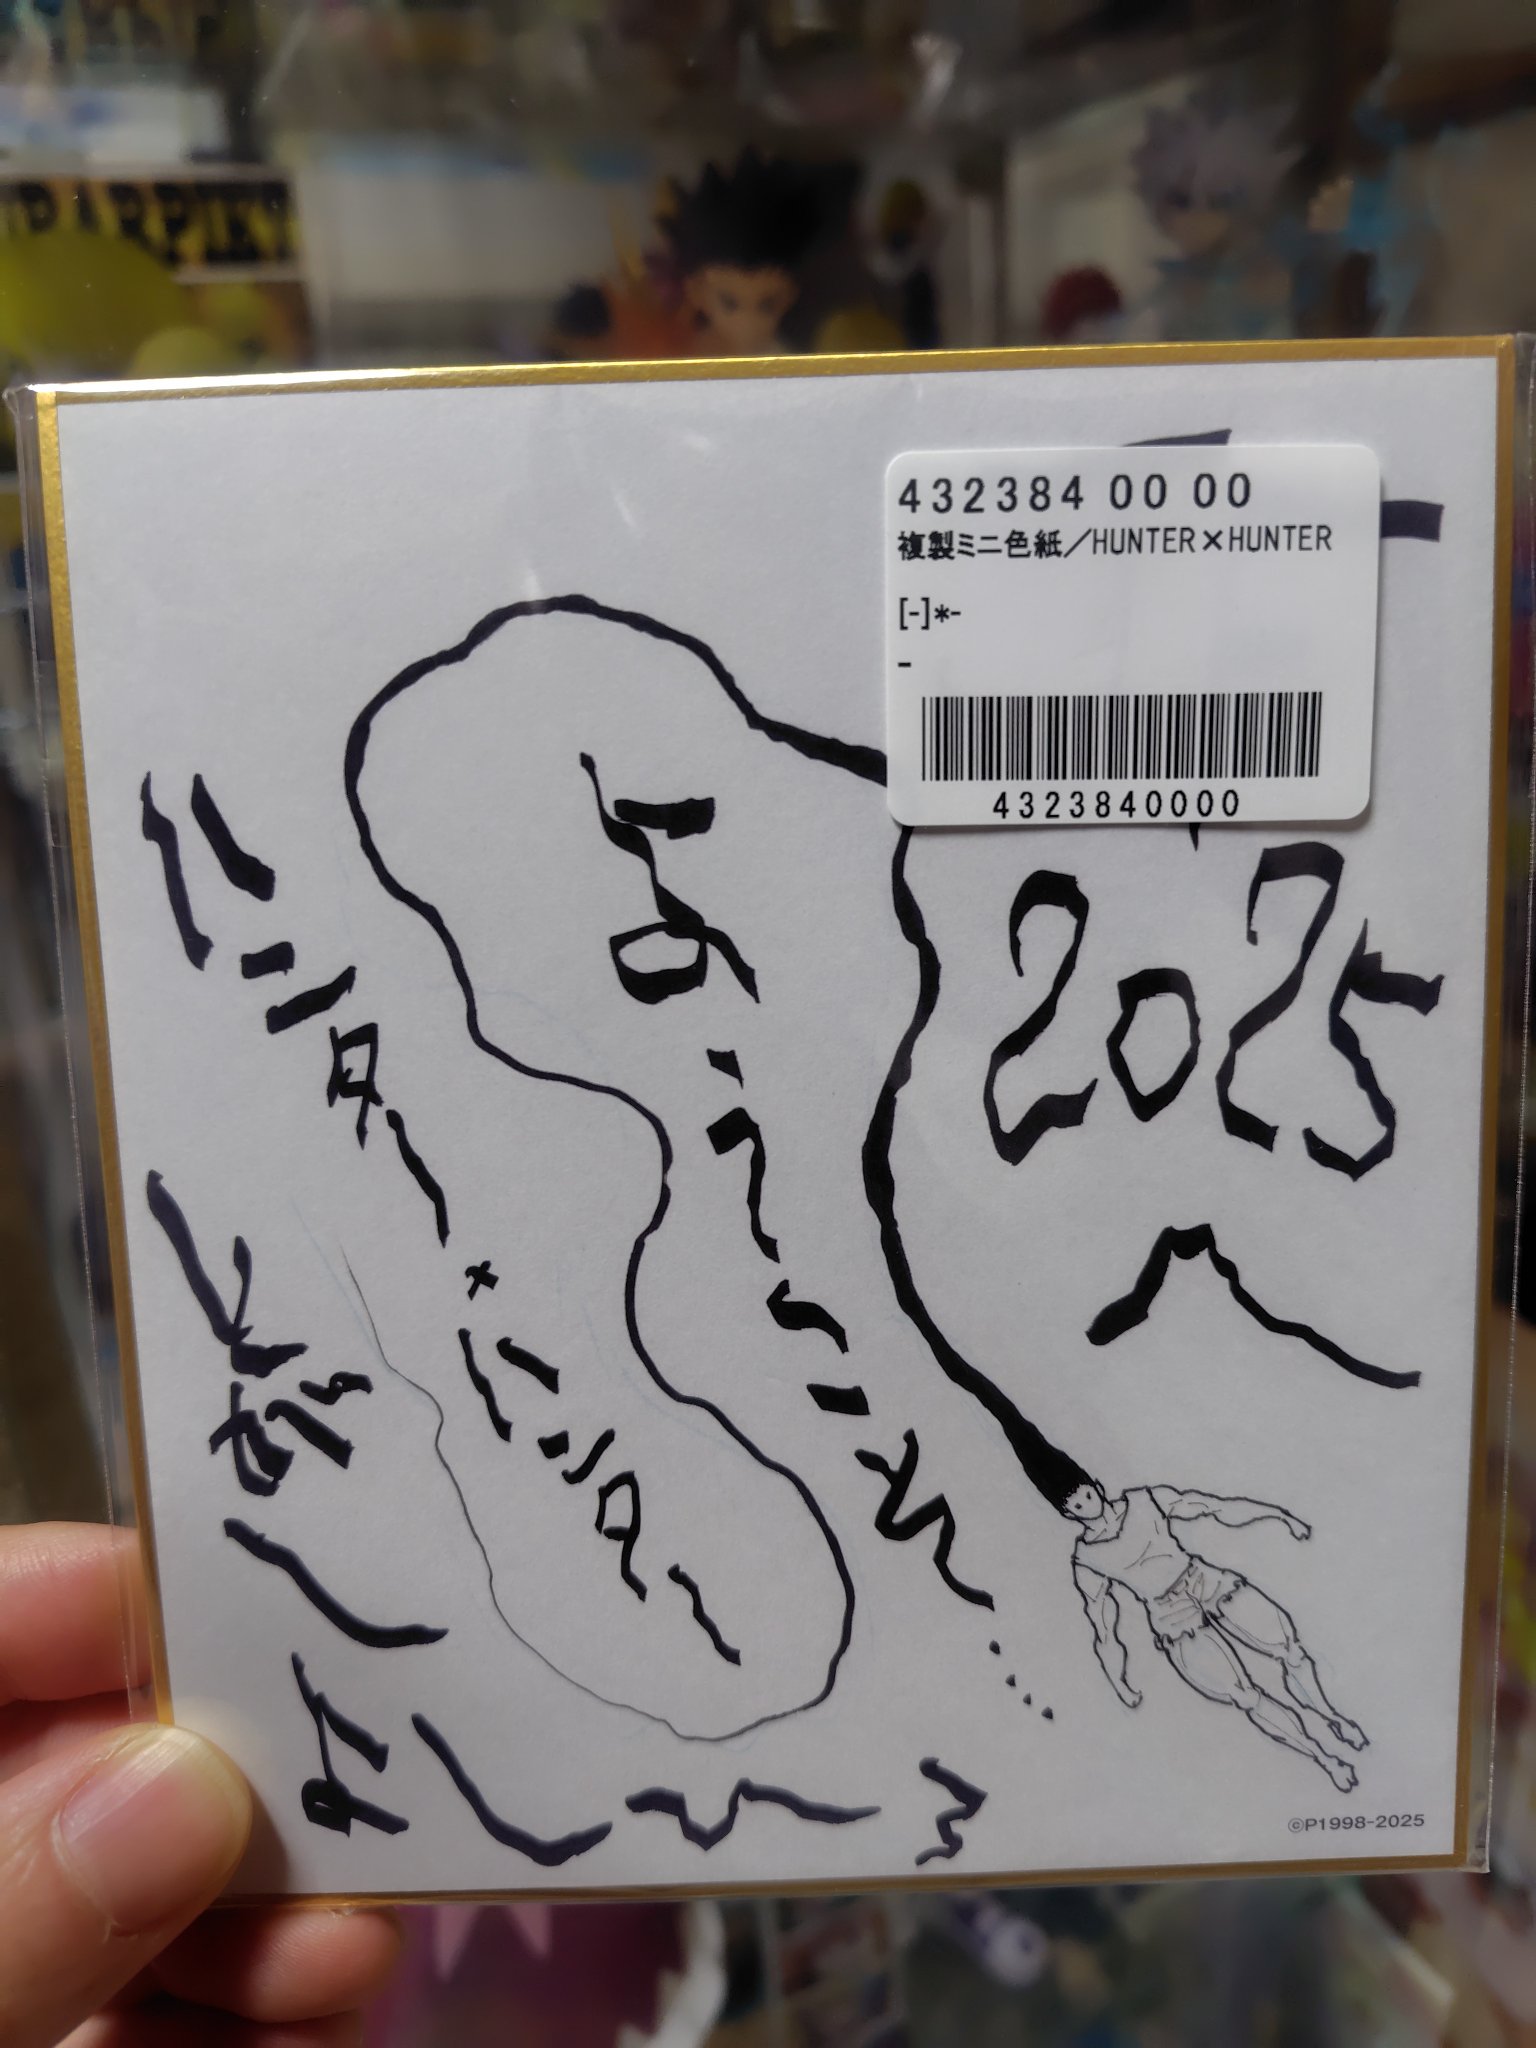 432384 00 00
複製ミニ色紙／HUNTER×HUNTER
[-]*-
-
4323840000
2025
へ
ようこそ‥‥
ハンター×ハンター
とがしよしひろ
©P1998-2025